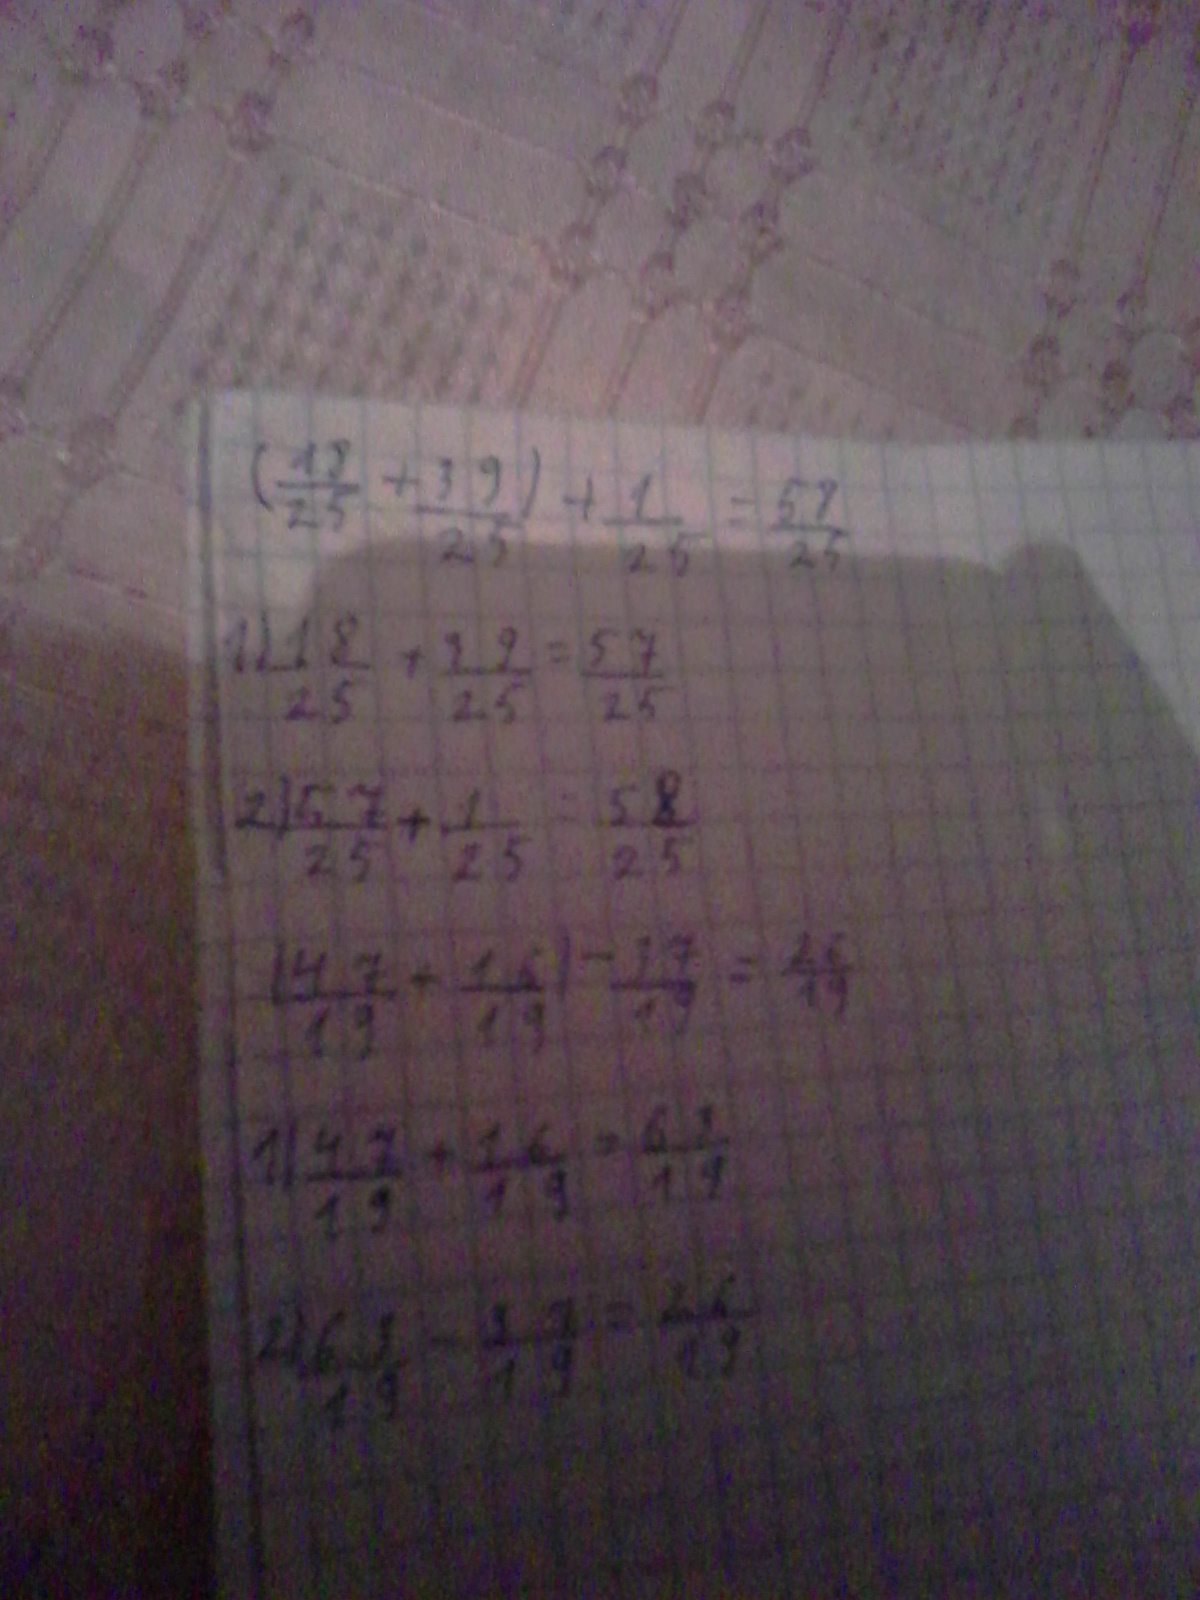 (18/25 + 39/25) + 1/25 = 58/25
1) 18/25 + 39/25 = 57/25
2) 57/25 + 1/25 = 58/25
(47/19 + 16/19) - 37/19 = 26/19
1) 47/19 + 16/19 = 63/19
2) 63/19 - 37/19 = 26/19